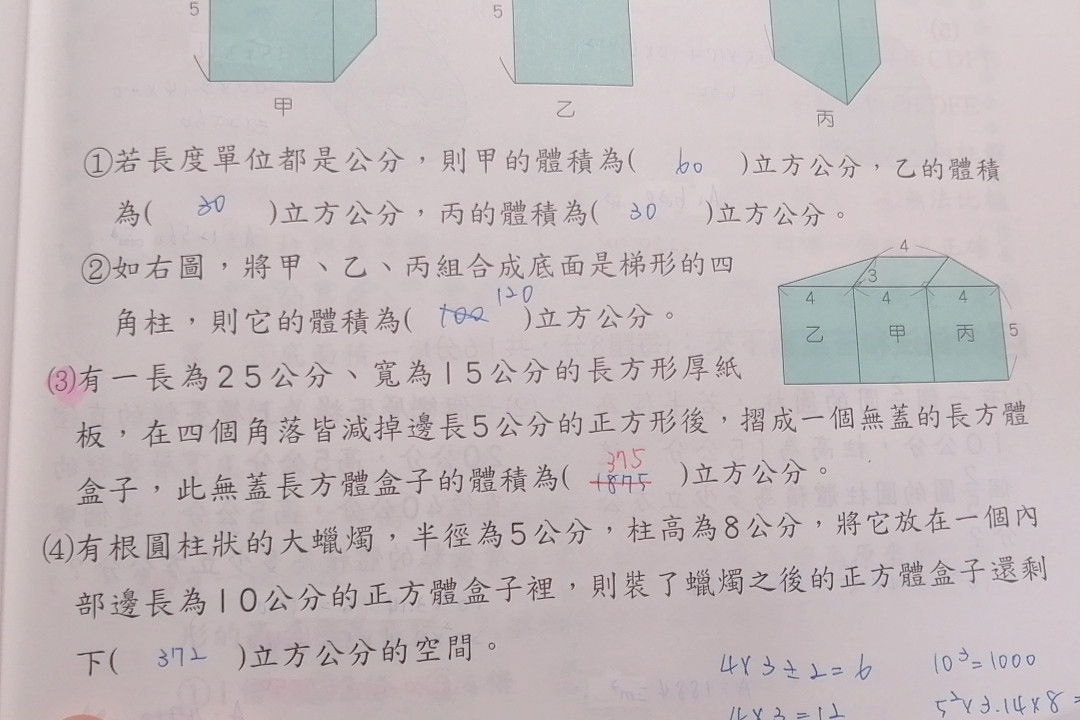 5
5
甲
乙
丙
①若長度單位都是公分，則甲的體積為( 60 )立方公分，乙的體積
為( 30 )立方公分，丙的體積為( 30 )立方公分。
②如右圖，將甲、乙、丙組合成底面是梯形的四
角柱，則它的體積為( 100 120 )立方公分。
4
3
4 4 4
乙 甲 丙 5
⑶有一長為25公分、寬為15公分的長方形厚紙
板，在四個角落皆減掉邊長5公分的正方形後，摺成一個無蓋的長方體
盒子，此無蓋長方體盒子的體積為( 1875 375 )立方公分。
⑷有根圓柱狀的大蠟燭，半徑為5公分，柱高為8公分，將它放在一個內
部邊長為10公分的正方體盒子裡，則裝了蠟燭之後的正方體盒子還剩
下( 372 )立方公分的空間。
4×3÷2=6
10³=1000
4×3=12
5²×3.14×8=